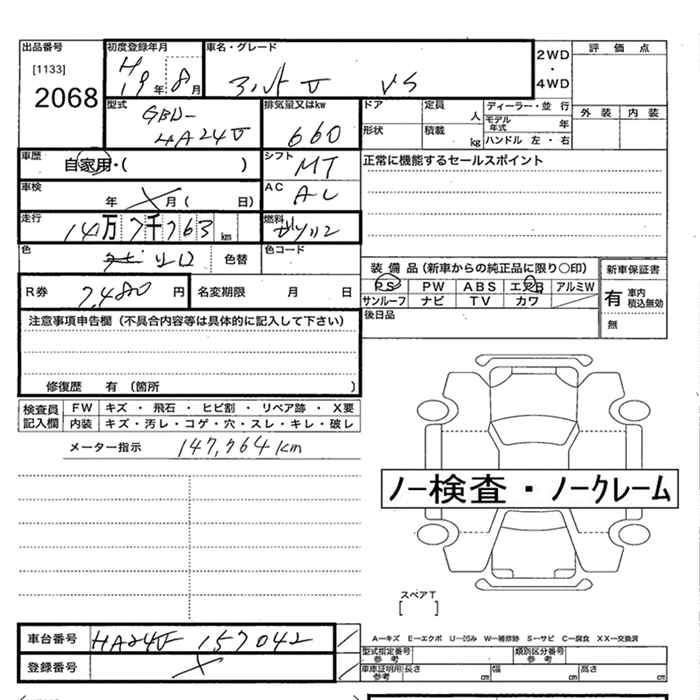 出品番号 初度登録年月 車名・グレード 2WD・4WD 評価点
[1133] H 19年 8月 ミニキャブ VS
2068
型式 排気量又はkw ドア 定員 人 ディーラー・並 行 外装 内装
GBD-HA24V 660 形状 積載 kg モデル年式 年
ハンドル 左・右
車歴 自家用・( ) シフト MT 正常に機能するセールスポイント
車検 年 月 ( 日) AC AC
走行 14万 7千763 km 燃料 ガソリン
色 シロ 色替 色コード 装備品(新車からの純正品に限り○印) 新車保証書
R券 7,480 円 名変期限 月 日 PS PW ABS エアB アルミW 有 車内積込無効
サンルーフ ナビ TV カワ 無
注意事項申告欄(不具合内容等は具体的に記入して下さい) 後日品
修復歴 有(箇所 )
検査員記入欄 FW キズ・飛石・ヒビ割・リペア跡・X要
内装 キズ・汚レ・コゲ・穴・スレ・キレ・破レ
メーター指示 147,764km
ノー検査・ノークレーム
スペアT
[ ]
A—キズ E—エクボ U—凹み W—補修跡 S—サビ C—腐食 XX—交換済
車台番号 HA24V 157042 型式指定番号 参考 類別区分番号 参考
登録番号 車庫証明用 参考 長さ cm 幅 cm 高さ cm